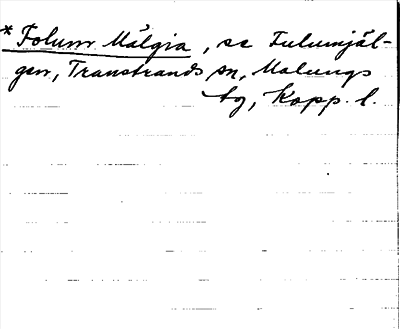 * Folum Mälgia, se Fulumjäl-
gen, Transtrands sn, Malungs
tg, Kopp. l.